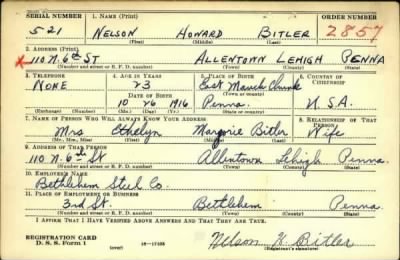 SERIAL NUMBER 1. NAME (Print) ORDER NUMBER
521 NELSON HOWARD BITLER 2857
(First) (Middle) (Last)
2. ADDRESS (Print)
X 110 N. 6th ST ALLENTOWN LEHIGH PENNA
(Number and street or R. F. D. number) (Town) (County) (State)
3. TELEPHONE 4. AGE IN YEARS 5. PLACE OF BIRTH 6. COUNTRY OF CITIZENSHIP
NONE 23 East Mauch Chunk
DATE OF BIRTH (Town or county)
10 16 1916 Penna. U.S.A.
(Exchange) (Number) (Mo.) (Day) (Yr.) (State or country)
7. NAME OF PERSON WHO WILL ALWAYS KNOW YOUR ADDRESS 8. RELATIONSHIP OF THAT PERSON
Mrs Ethelyn Marjorie Bitler Wife
(Mr., Mrs., Miss) (First) (Middle) (Last)
9. ADDRESS OF THAT PERSON
110 N. 6th St Allentown Lehigh Penna.
(Number and street or R. F. D. number) (Town) (County) (State)
10. EMPLOYER'S NAME
Bethlehem Steel Co.
11. PLACE OF EMPLOYMENT OR BUSINESS
3rd St. Bethlehem Penna.
(Number and street or R. F. D. number) (Town) (County) (State)
I AFFIRM THAT I HAVE VERIFIED ABOVE ANSWERS AND THAT THEY ARE TRUE.
REGISTRATION CARD
D. S. S. Form 1 (over) Nelson H. Bitler
(Registrant's signature)